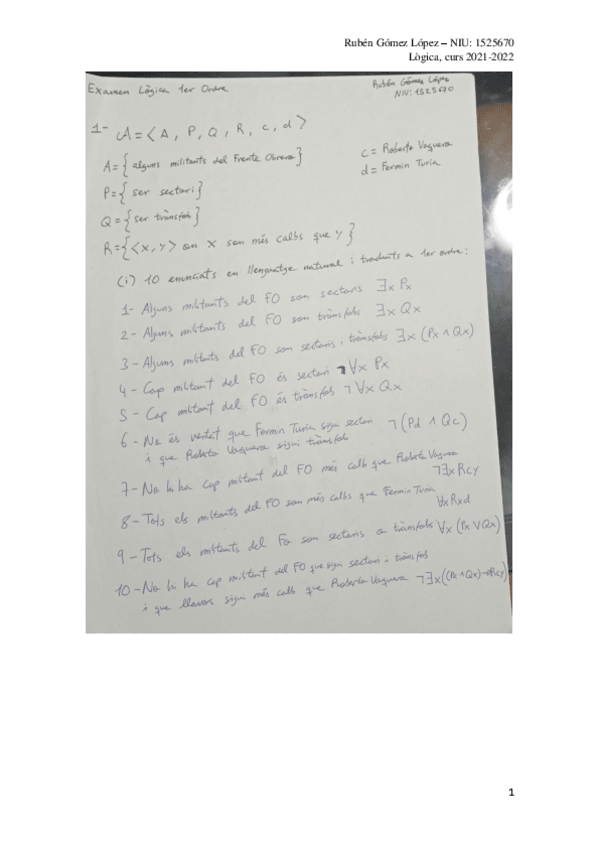 Rubén Gómez López – NIU: 1525670
Lògica, curs 2021-2022
Examen Lògica 1er Ordre
Rubén Gómez López
NIU: 1525670
1- A = < A, P, Q, R, c, d >
A = { alguns militants del Frente Obrero }
c = Roberto Vaquera
d = Fermin Turia
P = { ser sectari }
Q = { ser trànsfob }
R = { <x, y> on x son més calbs que y }
(i) 10 enunciats en llenguatge natural i traduits a 1er ordre:
1- Alguns militants del FO son sectaris ∃x Px
2 - Alguns militants del FO son trànsfobs ∃x Qx
3 - Alguns militants del FO son sectaris i trànsfobs ∃x (Px ∧ Qx)
4 - Cap militant del FO és sectari ¬∀x Px
5 - Cap militant del FO és trànsfob ¬∀x Qx
6 - No és veritat que Fermin Turia sigui sectari ¬(Pd ∧ Qc)
i que Roberto Vaquera sigui trànsfob
7 - No hi ha cap militant del FO més calb que Roberto Vaquera
¬∃x Rcy
8 - Tots els militants del FO son més calbs que Fermin Turia ∀x Rxd
9 - Tots els militants del Fo son sectaris o trànsfobs ∀x (Px ∨ Qx)
10 - No hi ha cap militant del FO que sigui sectari i trànsfob
i que llavors sigui més calb que Roberto Vaquera ¬∃x ((Px ∧ Qx) → Rcy)
1